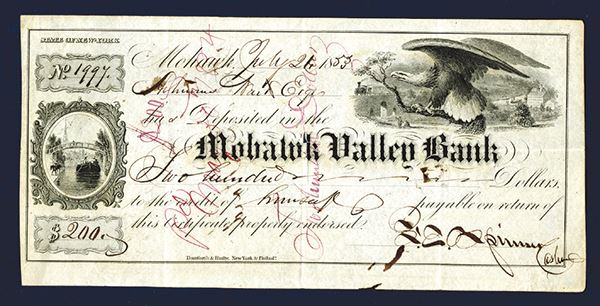 STATE OF NEW-YORK.
No 1997.
Mohawk, July 26 1853
Esq.
has Deposited in the
Mohawk Valley Bank
Two Hundred Dollars,
to the credit of himself payable on return of
this Certificate properly endorsed.
$200.
F. E. Spinner
Cash
Danforth & Hufty, New York & Philada.